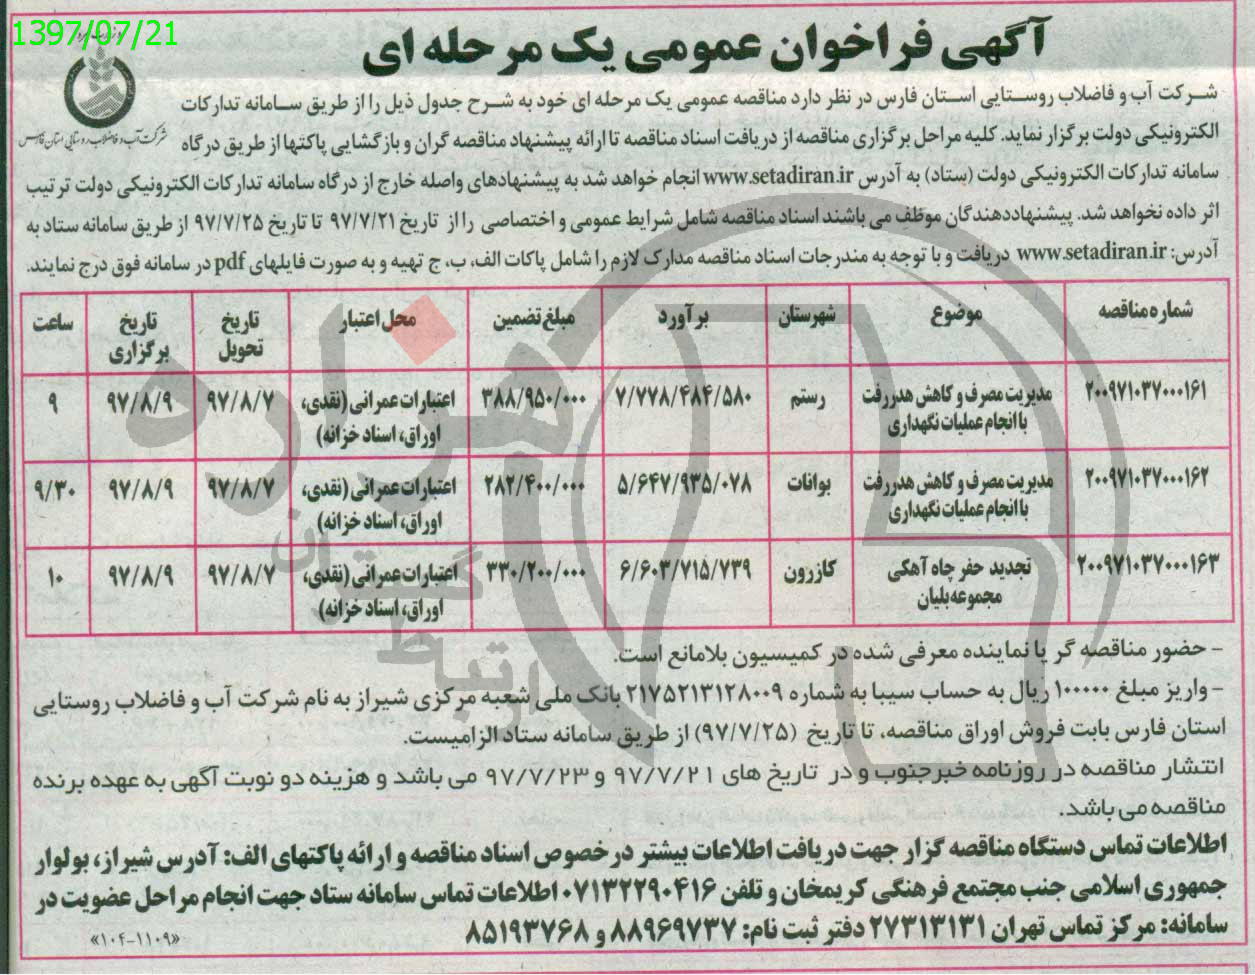 1397/07/21
آگهی فراخوان عمومی یک مرحله ای
شرکت آب و فاضلاب روستایی استان فارس
شرکت آب و فاضلاب روستایی استان فارس در نظر دارد مناقصه عمومی یک مرحله ای خود به شرح جدول ذیل را از طریق سامانه تدارکات
الکترونیکی دولت برگزار نماید. کلیه مراحل برگزاری مناقصه از دریافت اسناد مناقصه تا ارائه پیشنهاد مناقصه گران و بازگشایی پاکتها از طریق درگاه
سامانه تدارکات الکترونیکی دولت (ستاد) به آدرس www.setadiran.ir انجام خواهد شد به پیشنهادهای واصله خارج از درگاه سامانه تدارکات الکترونیکی دولت ترتیب
اثر داده نخواهد شد. پیشنهاددهندگان موظف می باشند اسناد مناقصه شامل شرایط عمومی و اختصاصی را از تاریخ ۹۷/۷/۲۱ تا تاریخ ۹۷/۷/۲۵ از طریق سامانه ستاد به
آدرس: www.setadiran.ir دریافت و با توجه به مندرجات اسناد مناقصه مدارک لازم را شامل پاکات الف، ب، ج تهیه و به صورت فایلهای pdf در سامانه فوق درج نمایند.
شماره مناقصه موضوع شهرستان برآورد مبلغ تضمین محل اعتبار تاریخ تحویل تاریخ برگزاری ساعت
۲۰۰۹۷۱۰۳۷۰۰۰۱۶۱ مدیریت مصرف و کاهش هدررفت با انجام عملیات نگهداری رستم ۷/۷۷۸/۴۸۴/۵۸۰ ۳۸۸/۹۵۰/۰۰۰ اعتبارات عمرانی (نقدی، اوراق، اسناد خزانه) ۹۷/۸/۷ ۹۷/۸/۹ ۹
۲۰۰۹۷۱۰۳۷۰۰۰۱۶۲ مدیریت مصرف و کاهش هدررفت با انجام عملیات نگهداری بوانات ۵/۶۴۷/۹۳۵/۰۷۸ ۲۸۲/۴۰۰/۰۰۰ اعتبارات عمرانی (نقدی، اوراق، اسناد خزانه) ۹۷/۸/۷ ۹۷/۸/۹ ۹/۳۰
۲۰۰۹۷۱۰۳۷۰۰۰۱۶۳ تجدید حفر چاه آهکی مجموعه بلیان کازرون ۶/۶۰۳/۷۱۵/۷۳۹ ۳۳۰/۲۰۰/۰۰۰ اعتبارات عمرانی (نقدی، اوراق، اسناد خزانه) ۹۷/۸/۷ ۹۷/۸/۹ ۱۰
- حضور مناقصه گر یا نماینده معرفی شده در کمیسیون بلامانع است.
- واریز مبلغ ۱۰۰۰۰۰ ریال به حساب سیبا به شماره ۲۱۷۵۲۱۳۱۲۸۰۰۹ بانک ملی شعبه مرکزی شیراز به نام شرکت آب و فاضلاب روستایی
استان فارس بابت فروش اوراق مناقصه، تا تاریخ (۹۷/۷/۲۵) از طریق سامانه ستاد الزامیست.
انتشار مناقصه در روزنامه خبرجنوب و در تاریخ های ۹۷/۷/۲۱ و ۹۷/۷/۲۳ می باشد و هزینه دو نوبت آگهی به عهده برنده
مناقصه می باشد.
اطلاعات تماس دستگاه مناقصه گزار جهت دریافت اطلاعات بیشتر درخصوص اسناد مناقصه و ارائه پاکتهای الف: آدرس شیراز، بولوار
جمهوری اسلامی جنب مجتمع فرهنگی کریمخان و تلفن ۰۷۱۳۲۲۹۰۴۱۶ اطلاعات تماس سامانه ستاد جهت انجام مراحل عضویت در
سامانه: مرکز تماس تهران ۲۷۳۱۳۱۳۱ دفتر ثبت نام: ۸۸۹۶۹۷۳۷ و ۸۵۱۹۳۷۶۸
«۱۰۴-۱۱۰۹»
هزاره
گستران
ارتباط